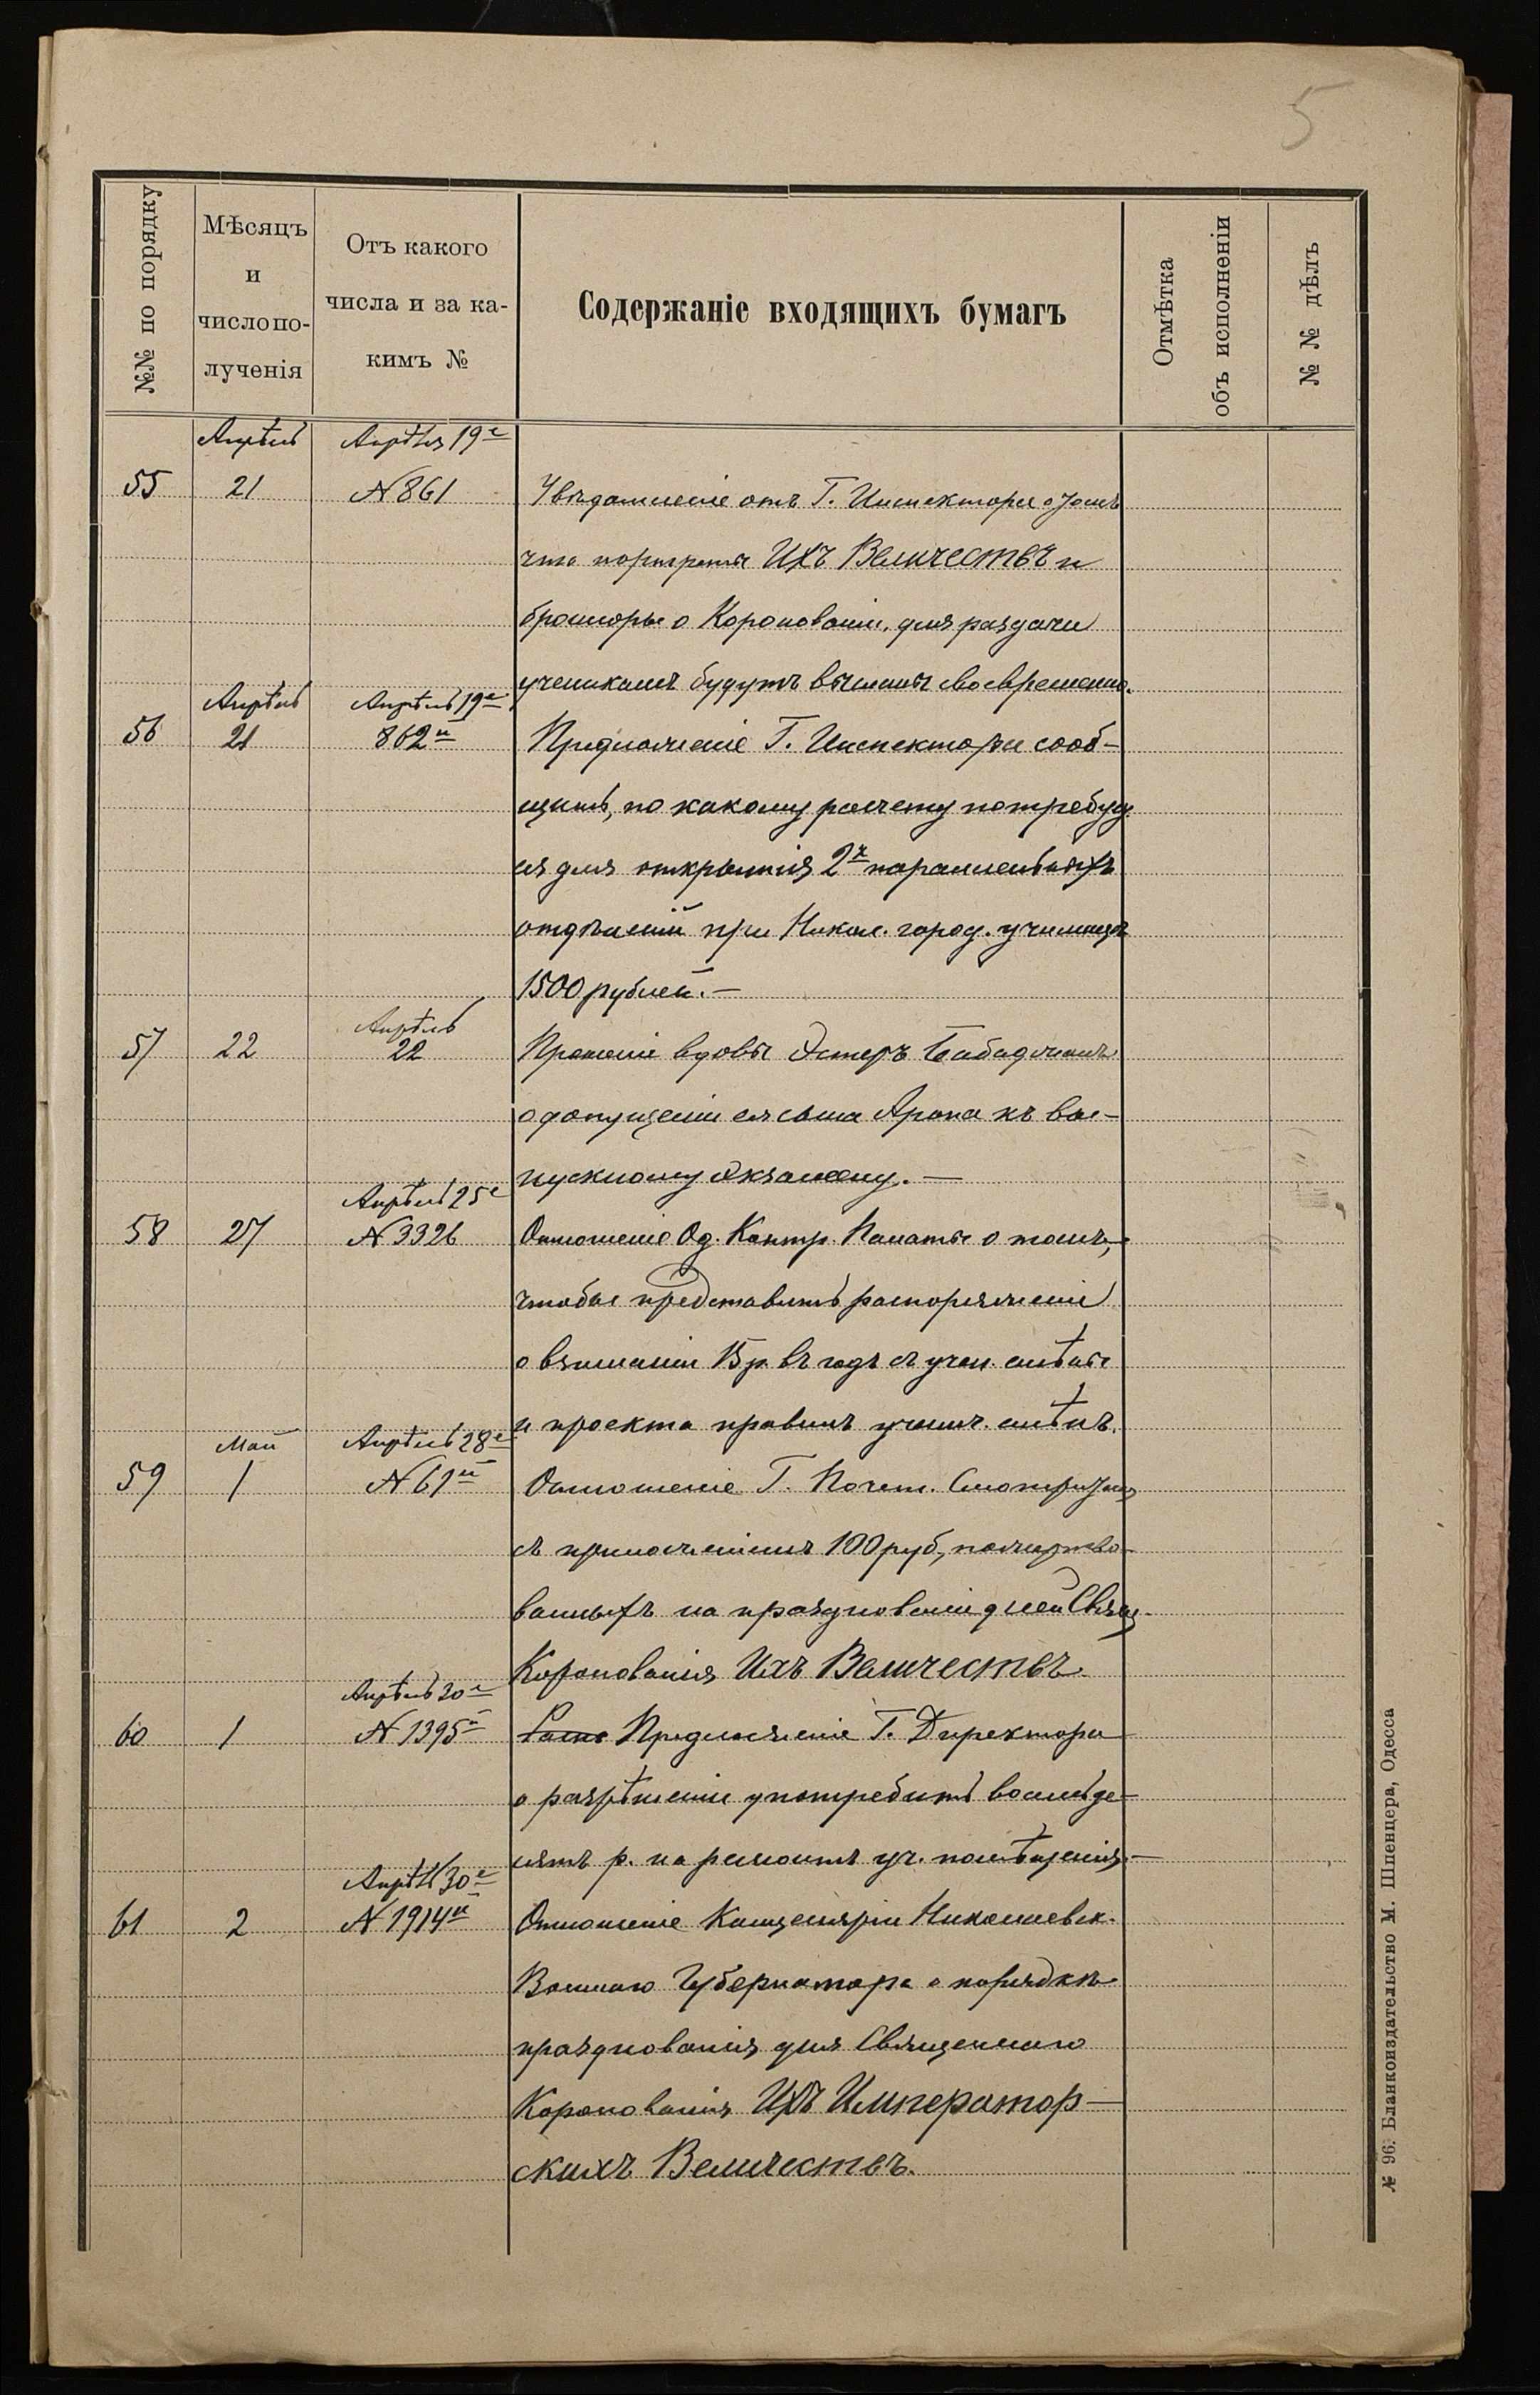 5
№№ по порядку
Мѣсяцъ
и
число по-
лученія
Отъ какого
числа и за ка-
кимъ №
Содержаніе входящихъ бумагъ
Отмѣтка
объ исполненіи
№ № дѣлъ
Апрѣль Апрѣля 19е
55 21 N 861 Увѣдомленіе отъ Г. Инспектора о томъ
что портреты ИХЪ ВЕЛИЧЕСТВЪ и
брошюры о Коронованіи, для раздачи
ученикамъ будутъ высланы своевременно.
Апрѣль Апрѣль 19е
56 21 862й Предложеніе Г. Инспектора сооб-
щить, по какому расчету потребует
ся для открытія 2х параллельныхъ
отдѣленій при Никол. город. училищѣ
1500 рублей. —
Апрѣль
57 22 22 Прошеніе вдовы Эстеръ
о допущеніи ея сына Арона къ вы-
пускному экзамену. —
Апрѣль 25е
58 27 N 3326 Отношеніе Од. Контр. Палаты о томъ,
чтобы представить распоряженіе
о взиманіи 15 р. въ годъ съ учен. смѣты
и проекта правилъ учил. смѣтъ.
Май Апрѣль 28е
59 1 N 61й Отношеніе Г. Почет. Смотрителя
съ приложеніемъ 100 руб., пожертво-
ванныхъ на празднованіе дней Свящ.
Коронованія Ихъ Величествъ.
Апрѣль 30е
60 1 N 1395й Предложеніе Г. Директора
о разрѣшеніи употребить восемьде-
сятъ р. на ремонтъ уч. помѣщенія. —
Апрѣль 30е
61 2 N 1914й Отношеніе Канцеляріи Николаевск.
Военнаго Губернатора о порядкѣ
празднованія дня Священнаго
Коронованія ИХЪ ИМПЕРАТОР-
СКИХЪ ВЕЛИЧЕСТВЪ.
№ 96. Бланкоиздательство М. Шпенцера, Одесса